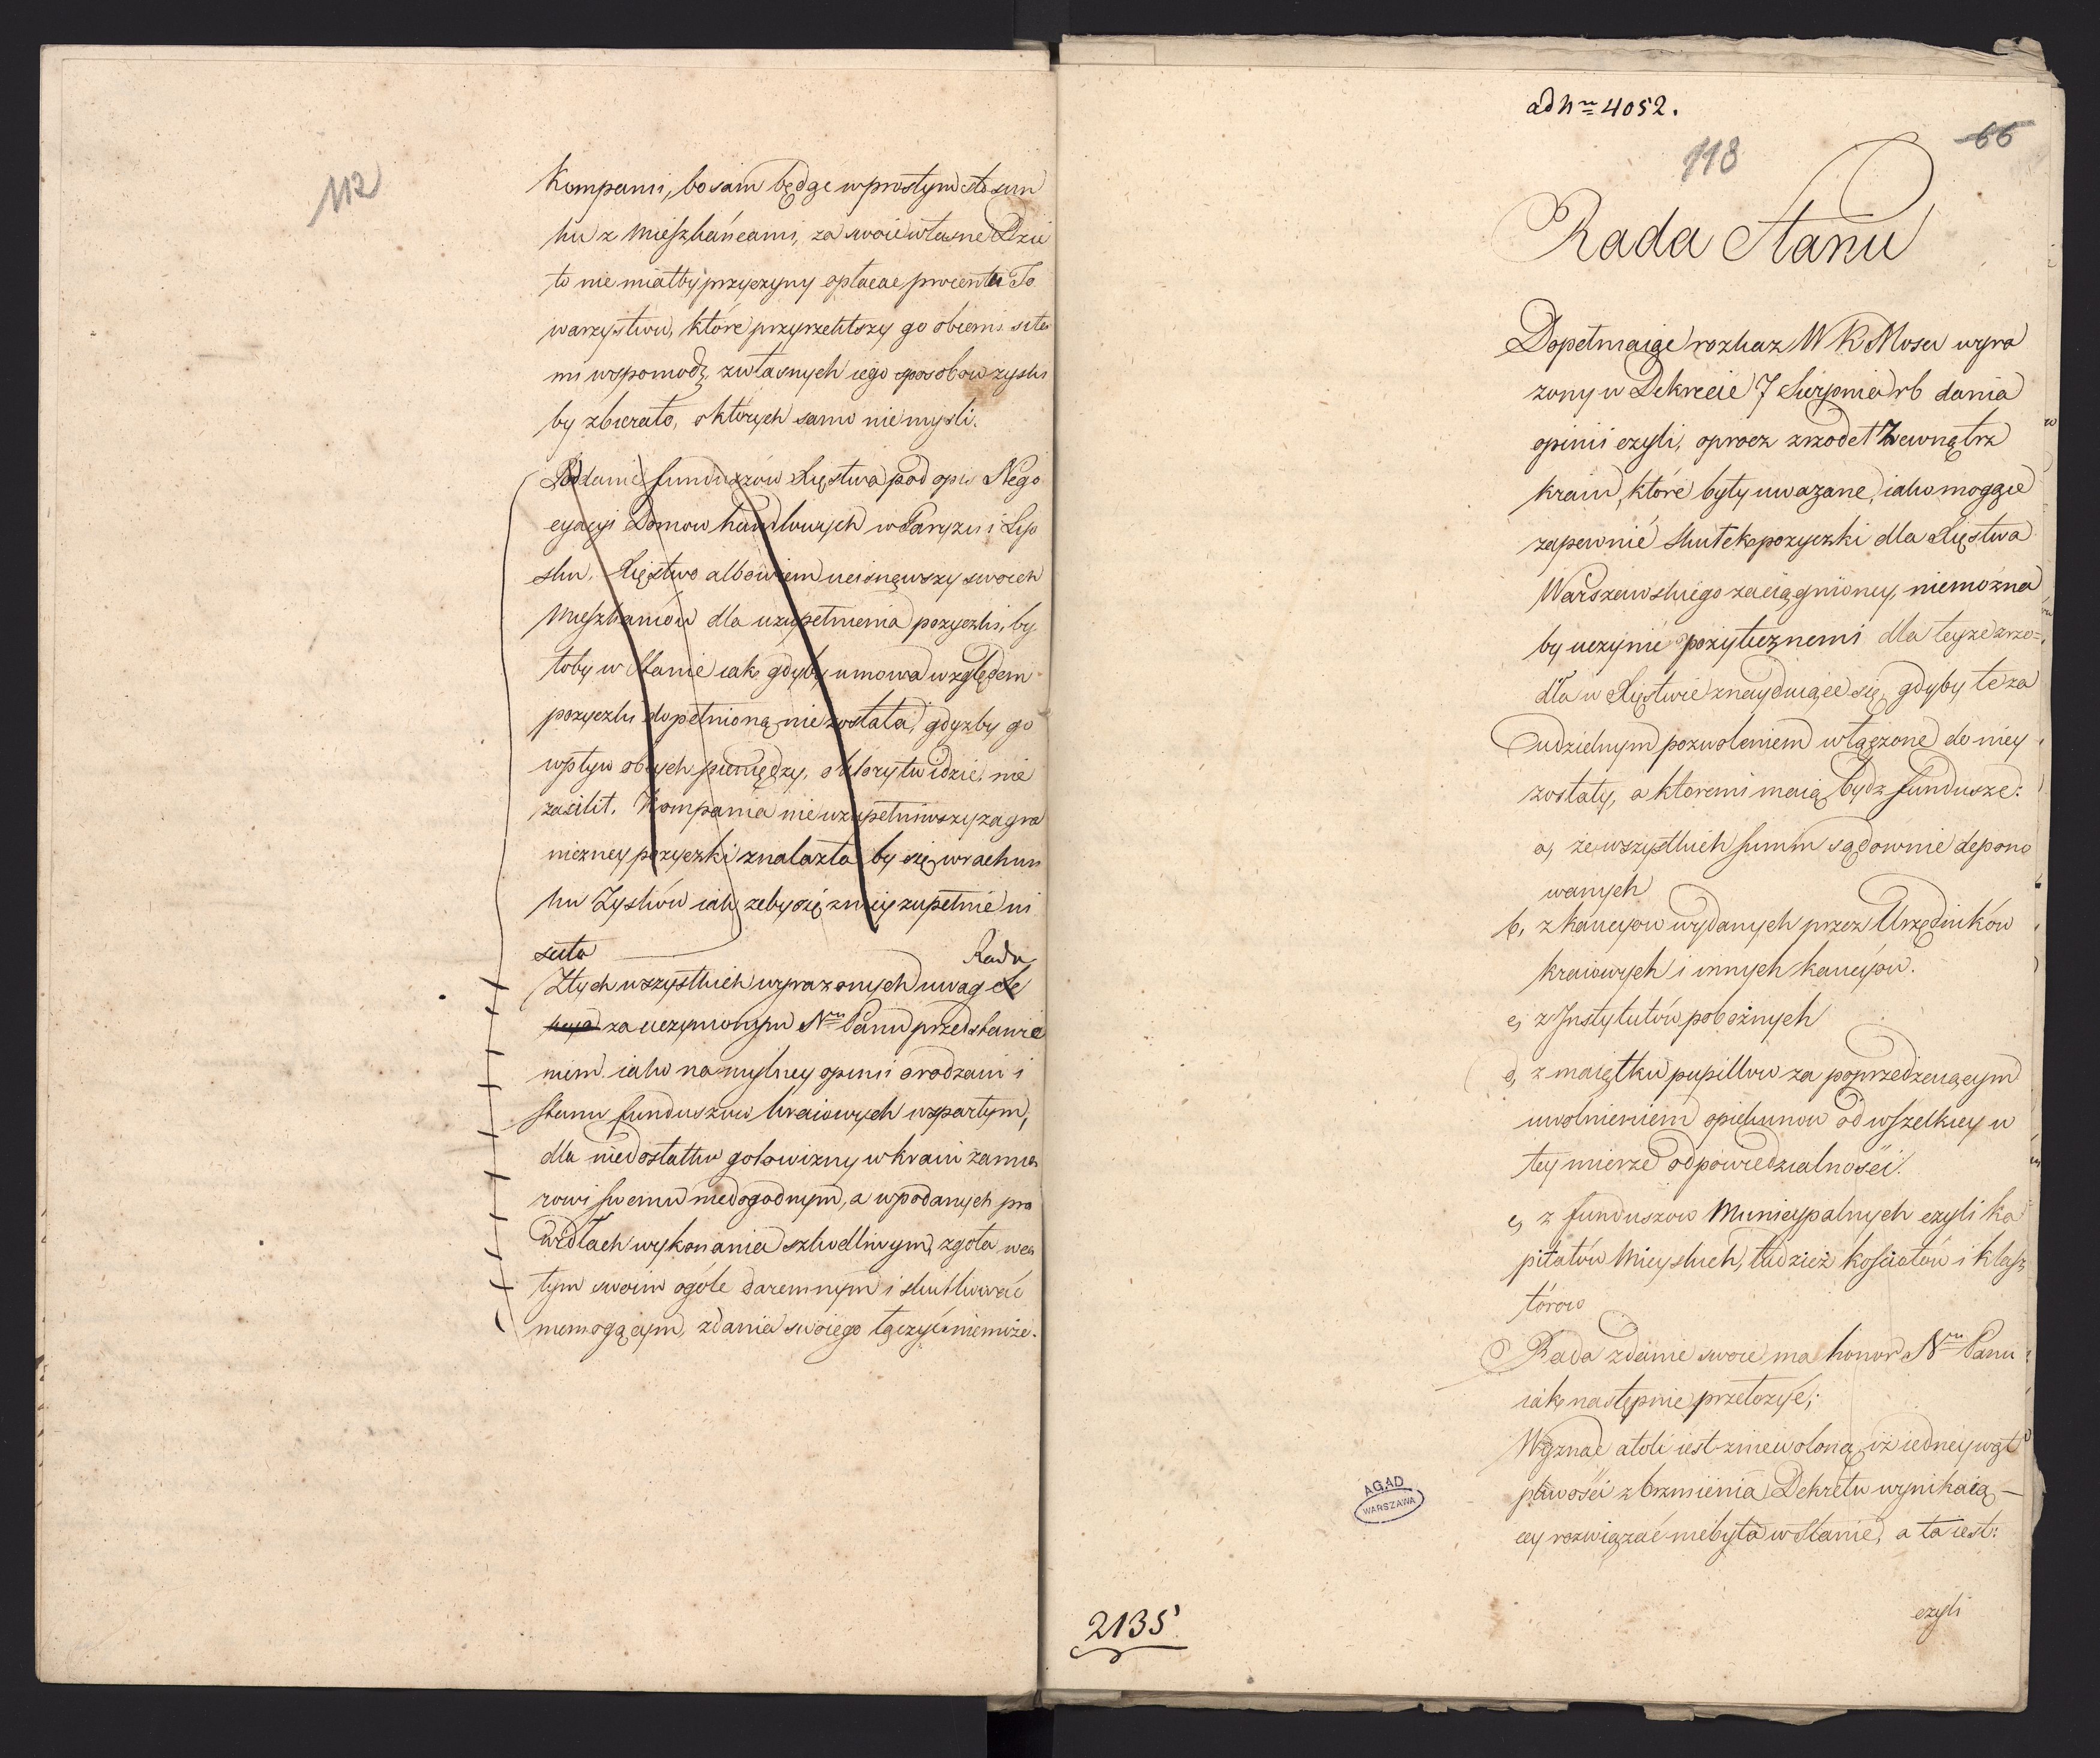 112
Kompanii, bo sam będąc w prostym stosun
ku z Mieszkańcami, za swoie własne Dzie
ło nie miałby przyczyny opłacać procentu To
warzystwu, które przyrzekłszy go obcemi siła
mi wspomódz, z własnych iego sposobow zyski
by zbierało, o których samo nie myśli.
Poddanie funduszów Xięstwa pod opis Nego
cyacyi Domow handlowych w Paryzu i Lip
sku. Xięstwo albowiem ucisnąwszy swoich
Mieszkańców dla uzupełnienia pozyczki, by
łoby w Stanie iak gdyby umowa względem
pozyczki dopełnioną nie została, gdyzby go
wpływ obcych pieniędzy, o który tu idzie, nie
zasilił. Kompania nie uzupełniwszy zagra
niczney pozyczki znalazła by się w rachun
ku Zysków iak zeby się z niey zupełnie ui
sciła
Rada
Z tych wszystkich wyrazonych uwag
za uczynionym Nmu Panu przedstawie
niem iako na mylney opinii o rodzaiu i
stanu funduszow kraiowych wspartym,
dla niedostatku gotowizny w kraiu zamia
rowi swemu niedogodnym, a w podanych pra
widłach wykonania szkodliwym, zgoła w ca
łym swoim ogóle daremnym i skutkować
niemogącym, zdania swoiego łączyć niemoże.
ad Nrm 4052.
118
66
Rada Stanu
Dopełniaiąc rozkaz W K Mosci wyra
zony w Dekrecie 7 Sierpnia rb dania
opinii czyli, oprocz zrzodeł Zewnątrz
kraiu, które były uwazane, iako mogące
zapewnić skutek pozyczki dla Xięstwa
Warszawskiego zaciągnioney, niemozna
by uczynić pożytecznemi dla teyze zrzo=
dła w Xięstwie znayduiące się, gdyby te za
udzielnym pozwoleniem włączone do niey
zostały, a ktoremi maią bydz fundusze:
a, ze wszystkich summ sądownie depono
wanych
b, z kaucyow wydanych przez Urzędników
kraiowych i innych kaucyów.
c, z Instytutów pobożnych
d, z maiątku pupillow za poprzedzaiącym
uwolnieniem opiekunow od wszelkiey w
tey mierze odpowiedzialności.
e, z funduszow Municypalnych czyli ka
pitałów Mieyskich, tudzież kościołów i klasz
torow
Rada zdanie swoie ma honor Nmu Panu
iak następnie przełożyć;
Wyznać atoli iest zniewoloną, iż iedney wąt
pliwości z brzmienia Dekretu wynikaią—
cey rozwiązać niebyła w Stanie, a ta iest:
czyli
AGAD
WARSZAWA
2135